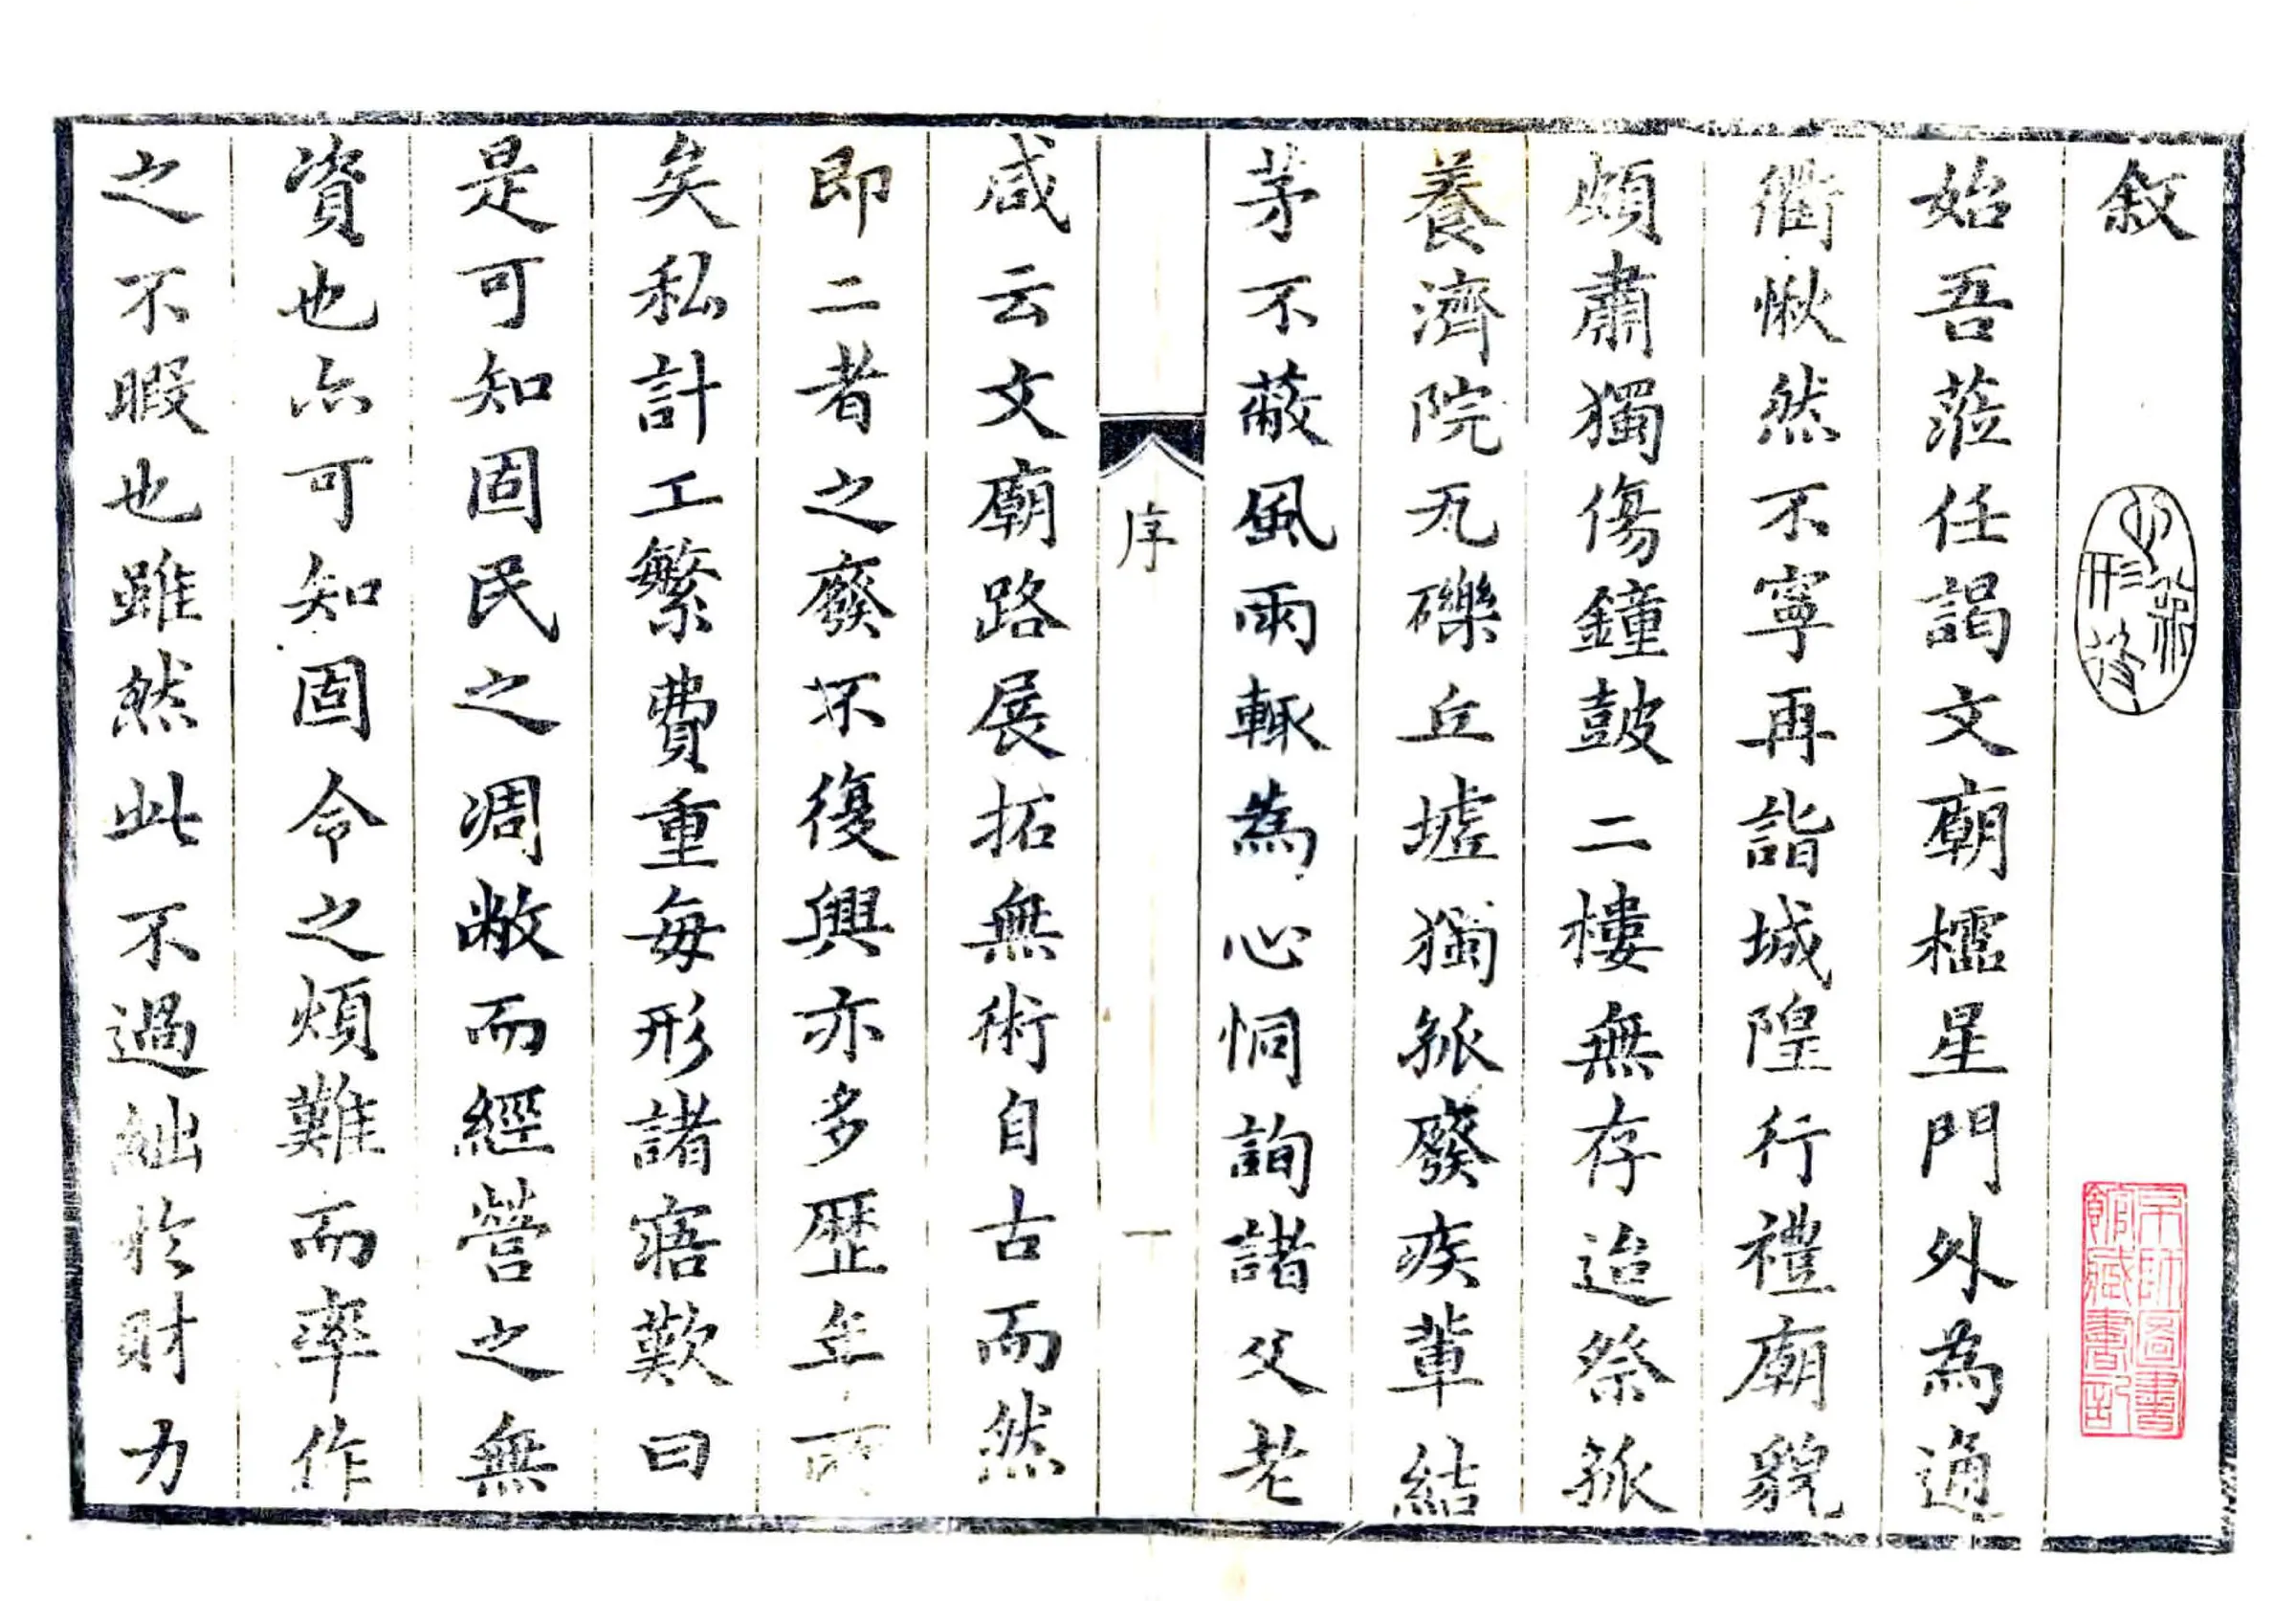 敘
始吾蒞任謁文廟櫺星門外為通
衢愀然不寧再詣城隍行禮廟貌
頗肅獨傷鐘鼓二樓無存迨祭孤
養濟院瓦礫丘墟獨孤癈疾輩結
茅不蔽風雨輒為心恫詢諸父老
序
一
咸云文廟路展拓無術自古而然
即二者之癈不復興亦多歷年所
矣私計工繁費重每形諸寤歎曰
是可知固民之凋敝而經營之無
資也亦可知固令之煩難而率作
之不暇也雖然此不過絀於財力
京師圖書
館藏書記